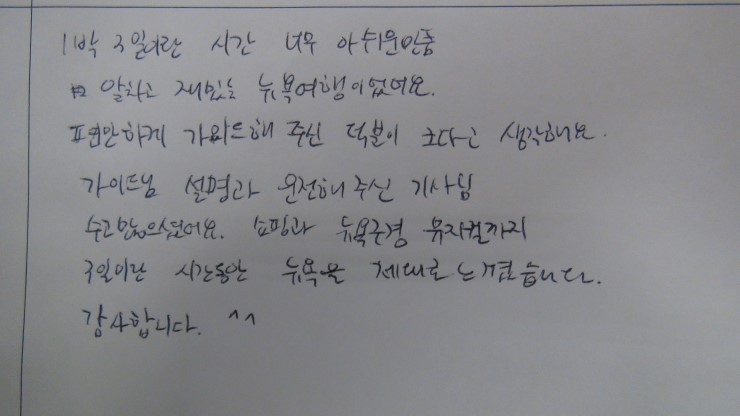 1박 3일이란 시간 너무 아쉬운만큼
알차고 재밌는 뉴욕여행이었어요.
편안하게 가이드해 주신 덕분이 크다고 생각해요.
가이드님 설명과 운전해주신 기사님
수고많으셨어요. 쇼핑과 뉴욕구경 뮤지컬까지
3일이란 시간동안 뉴욕을 제대로 느겼습니다.
감사합니다. ^^